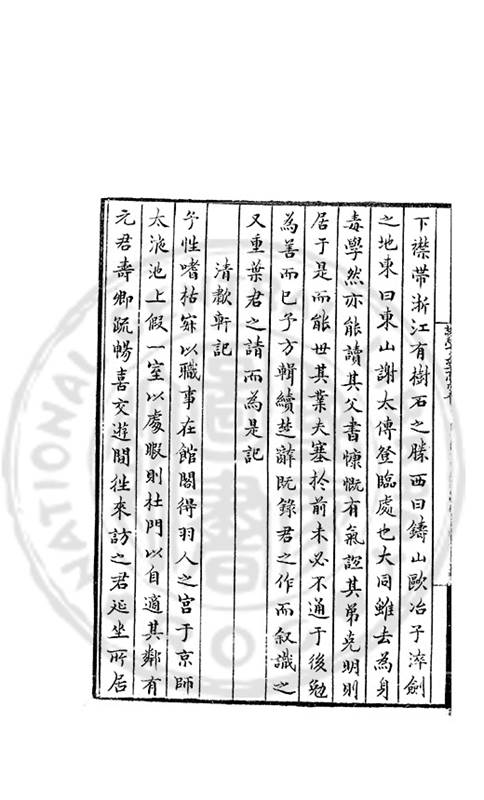 下襟帶浙江有樹石之勝西曰鑄山歐冶子淬劍
之地東曰東山謝太傅登臨處也大同雖去為身
毒學然亦能讀其父書慷慨有氣誼其弟克明則
居于是而能世其業夫塞於前未必不通于後勉
為善而已予方輯續楚辭既錄君之作而叙識之
又重葉君之請而為是記
清漱軒記
予性嗜枯寂以職事在館閣得羽人之宮于京師
太液池上假一室以處暇則杜門以自適其鄰有
元君壽卿疏暢喜交遊間徃來訪之君延坐所居